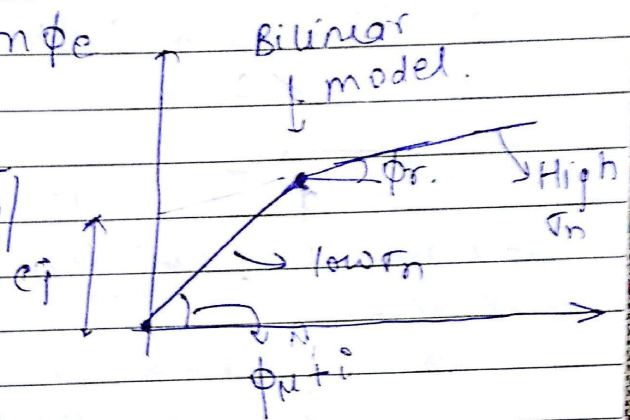 n ϕe
Bilinear
model.
ϕr.
High
σn
cj
low σn
ϕμ + i